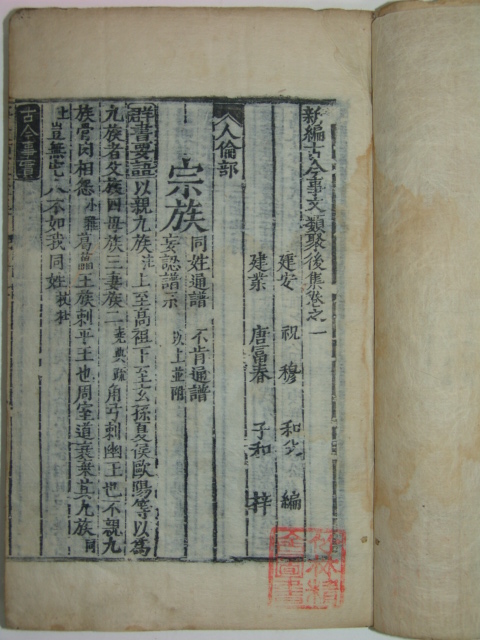 新編古今事文類聚後集卷之一
建安 祝 穆 和父 編
建業 唐富春 子和 梓
人倫部
宗族 同姓通譜 不肯通譜
妄認譜宗 以上並附
群書要語以親九族注上至髙祖下至玄孫夏侯歐陽等以爲
九族者父族四母族三妻族二堯典疏角弓刺幽王也不親九
族骨肉相怨小雅葛藟王族刺平王也周室道衰棄其九族同
上豈無他人不如我同姓杕杜
古今事實